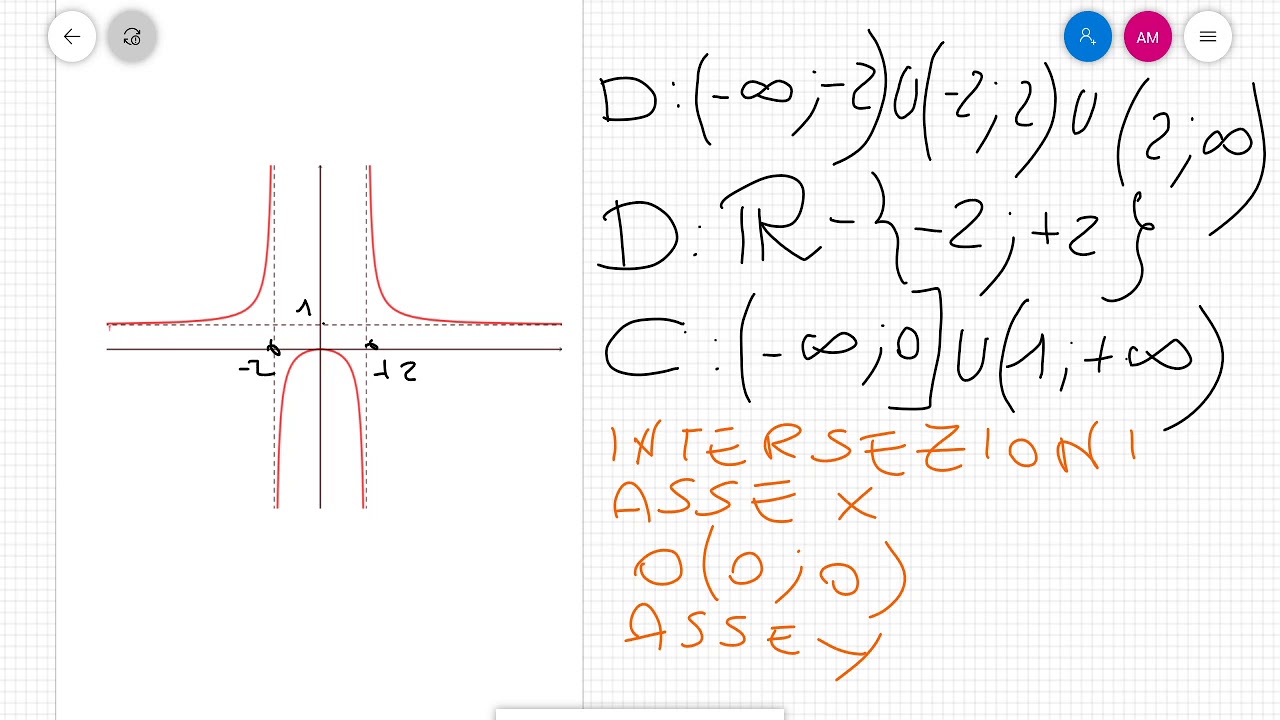 AM
1
-2
+2
D: (-∞;-2)∪(-2;2)∪(2;∞)
D: ℝ-{-2;+2}
C: (-∞;0]∪(1;+∞)
INTERSEZIONI
ASSE X
O(0;0)
ASSE y